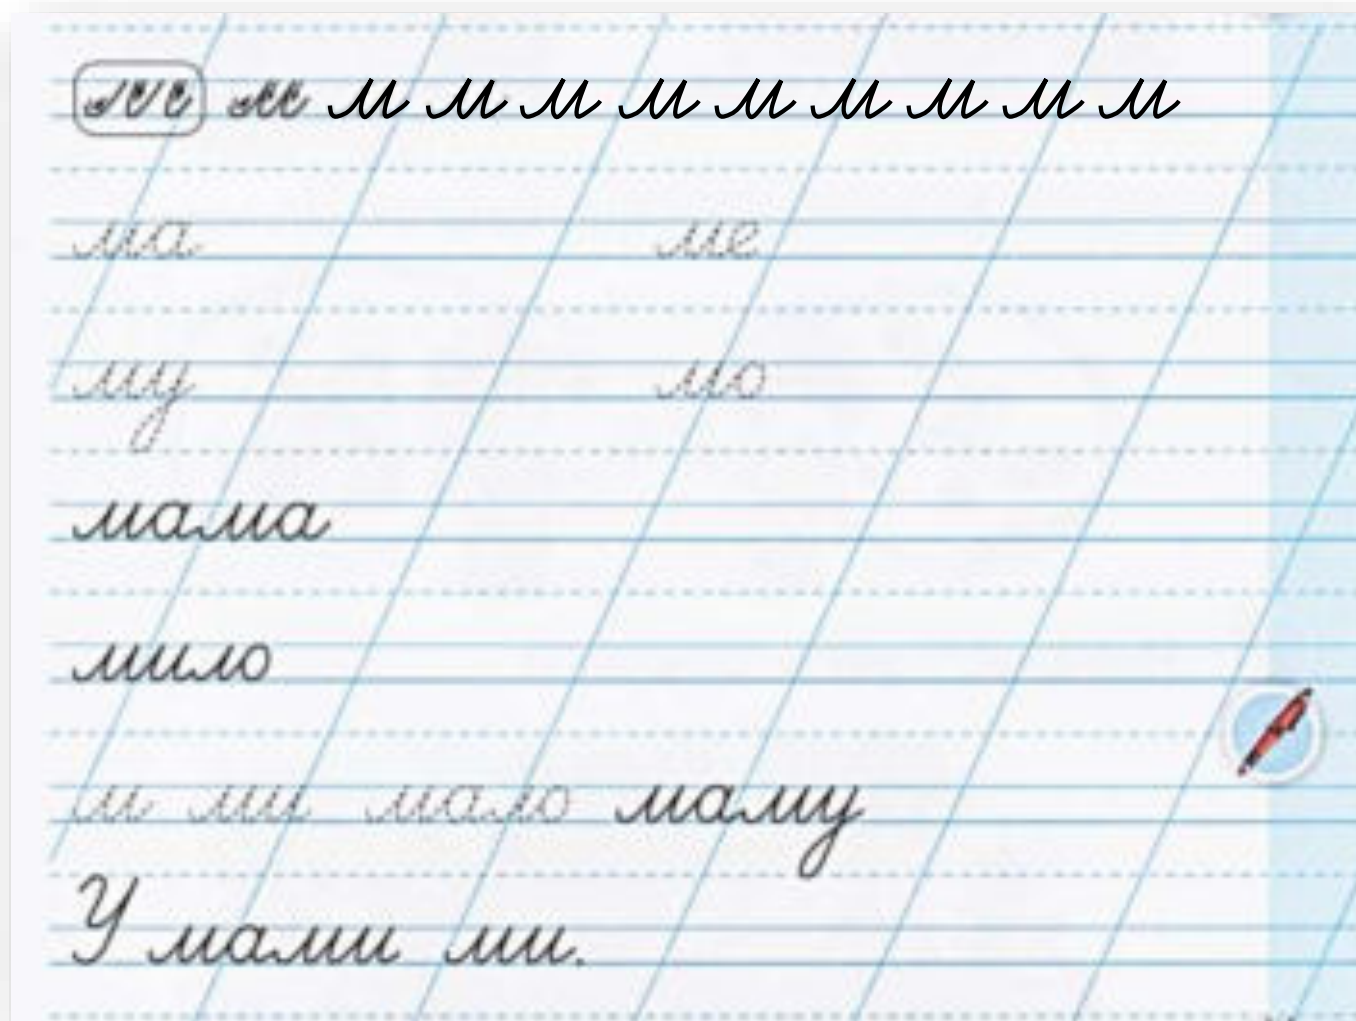 м м м м м м м м м м м
ма ме
му мо
мама
мило
м ми мало маму
У мами ми.